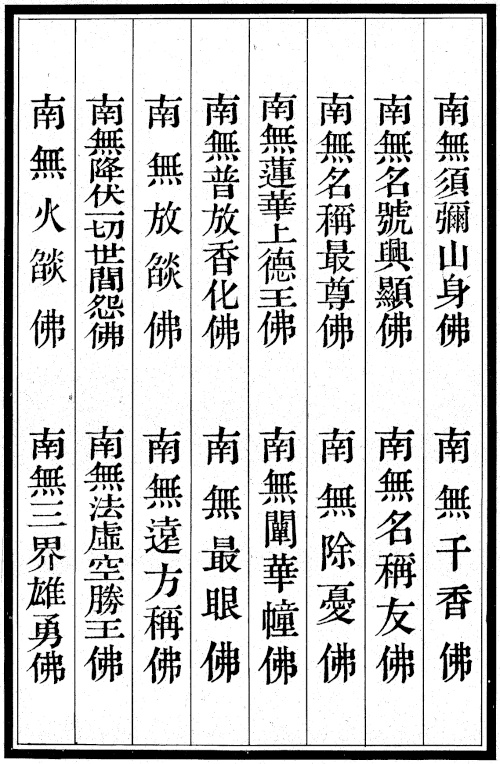 南無須彌山身佛
南無千香佛
南無名號興顯佛
南無名稱友佛
南無名稱最尊佛
南無除憂佛
南無蓮華上德王佛
南無闡華幢佛
南無普放香化佛
南無最眼佛
南無放燄佛
南無遠方稱佛
南無降伏一切世間怨佛
南無法虛空勝王佛
南無火燄佛
南無三界雄勇佛